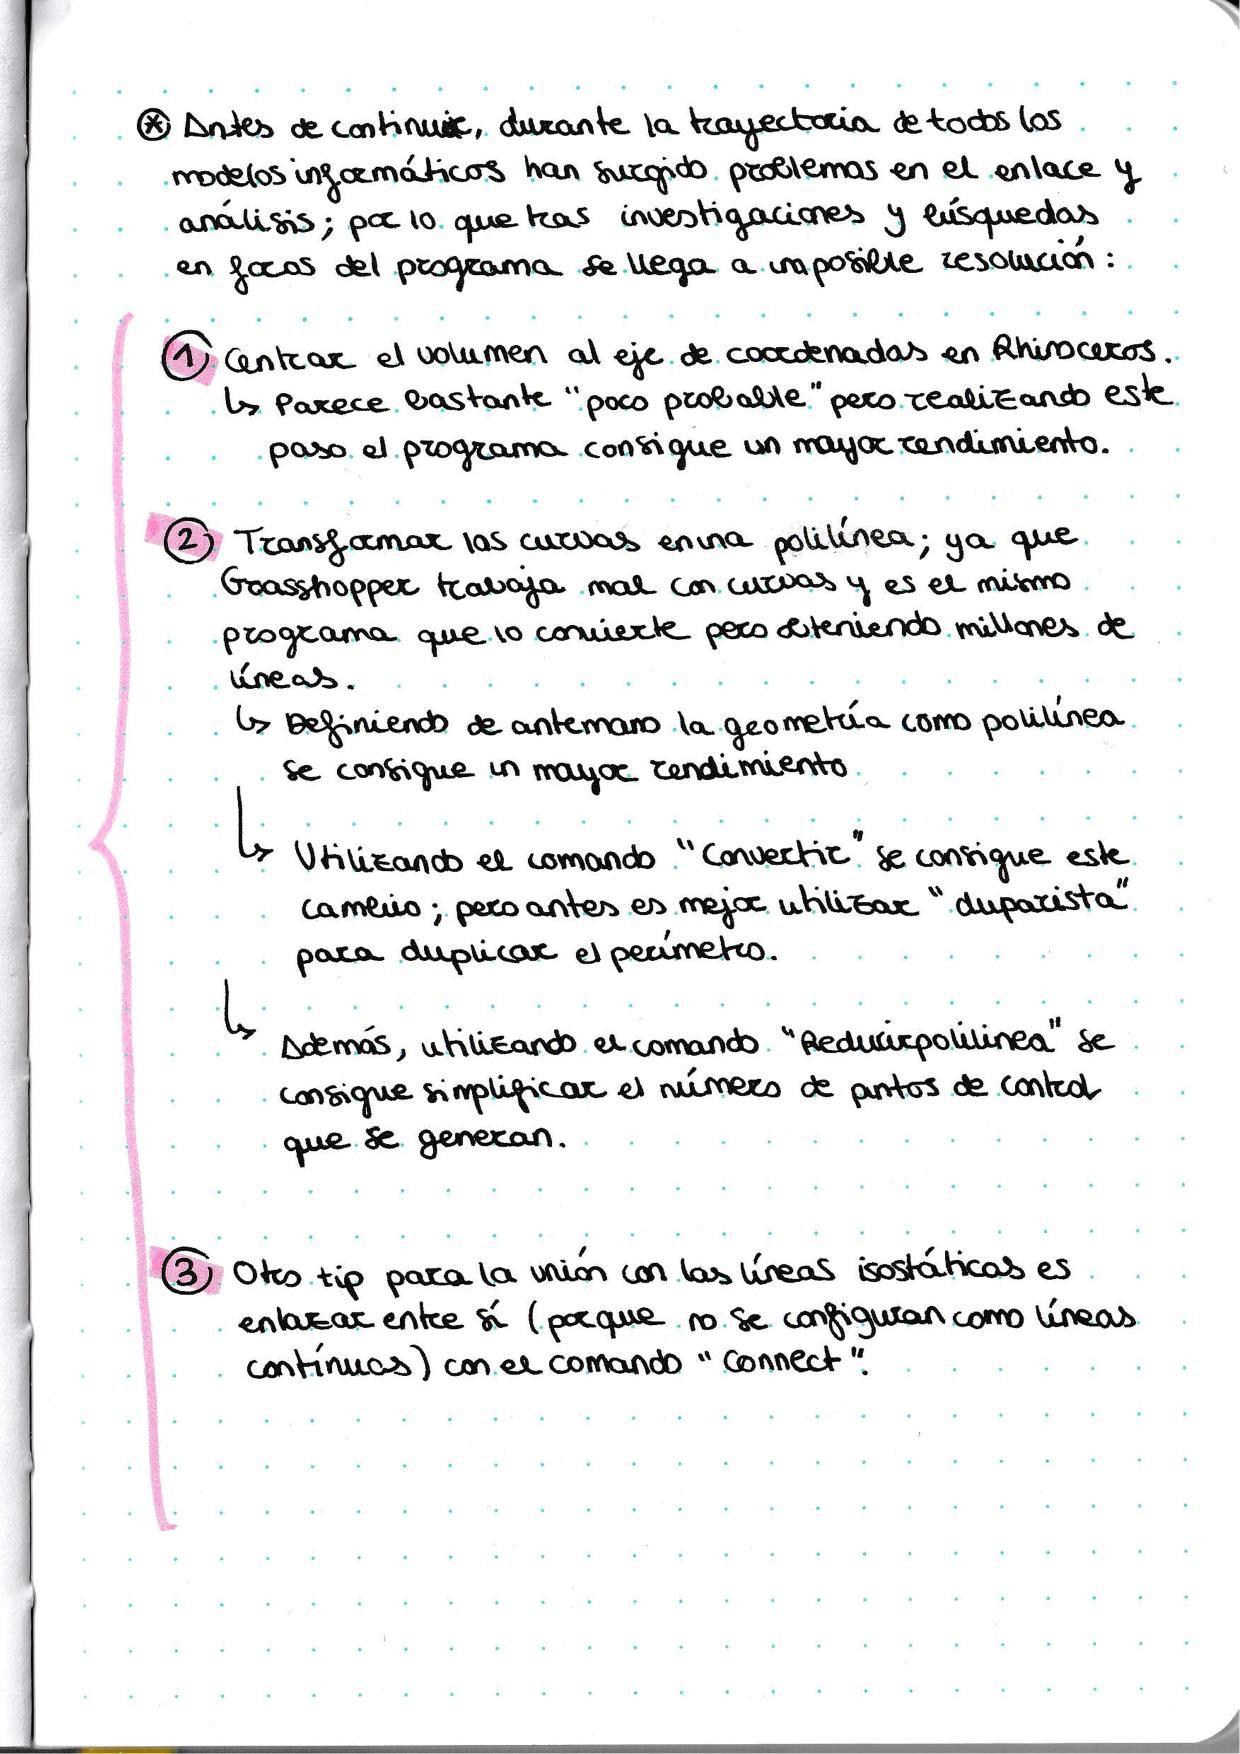 ⊛ Antes de continuir, durante la trayectoria de todos los
modelos informáticos han surgido problemas en el enlace y
análisis; por lo que tras investigaciones y búsquedas
en foros del programa se llega a imposible resolución:
① Centrar el volumen al eje de coordenadas en Rhinoceros.
↳ Parece bastante "poco probable" pero realizando este
paso el programa consigue un mayor rendimiento.
② Transformar las curvas en una polilínea; ya que
Grasshopper trabaja mal con curvas y es el mismo
programa que lo convierte pero obteniendo millones de
líneas.
↳ Definiendo de antemano la geometría como polilínea
se consigue un mayor rendimiento
↳ Utilizando el comando "Convertir" se consigue este
cambio; pero antes es mejor utilizar "duparista"
para duplicar el perímetro.
↳ Además, utilizando el comando "Reducirpolilinea" se
consigue simplificar el número de puntos de control
que se generan.
③ Otro tip para la unión con las líneas isostáticas es
enlazar entre sí (porque no se configuran como líneas
contínuas) con el comando "Connect".